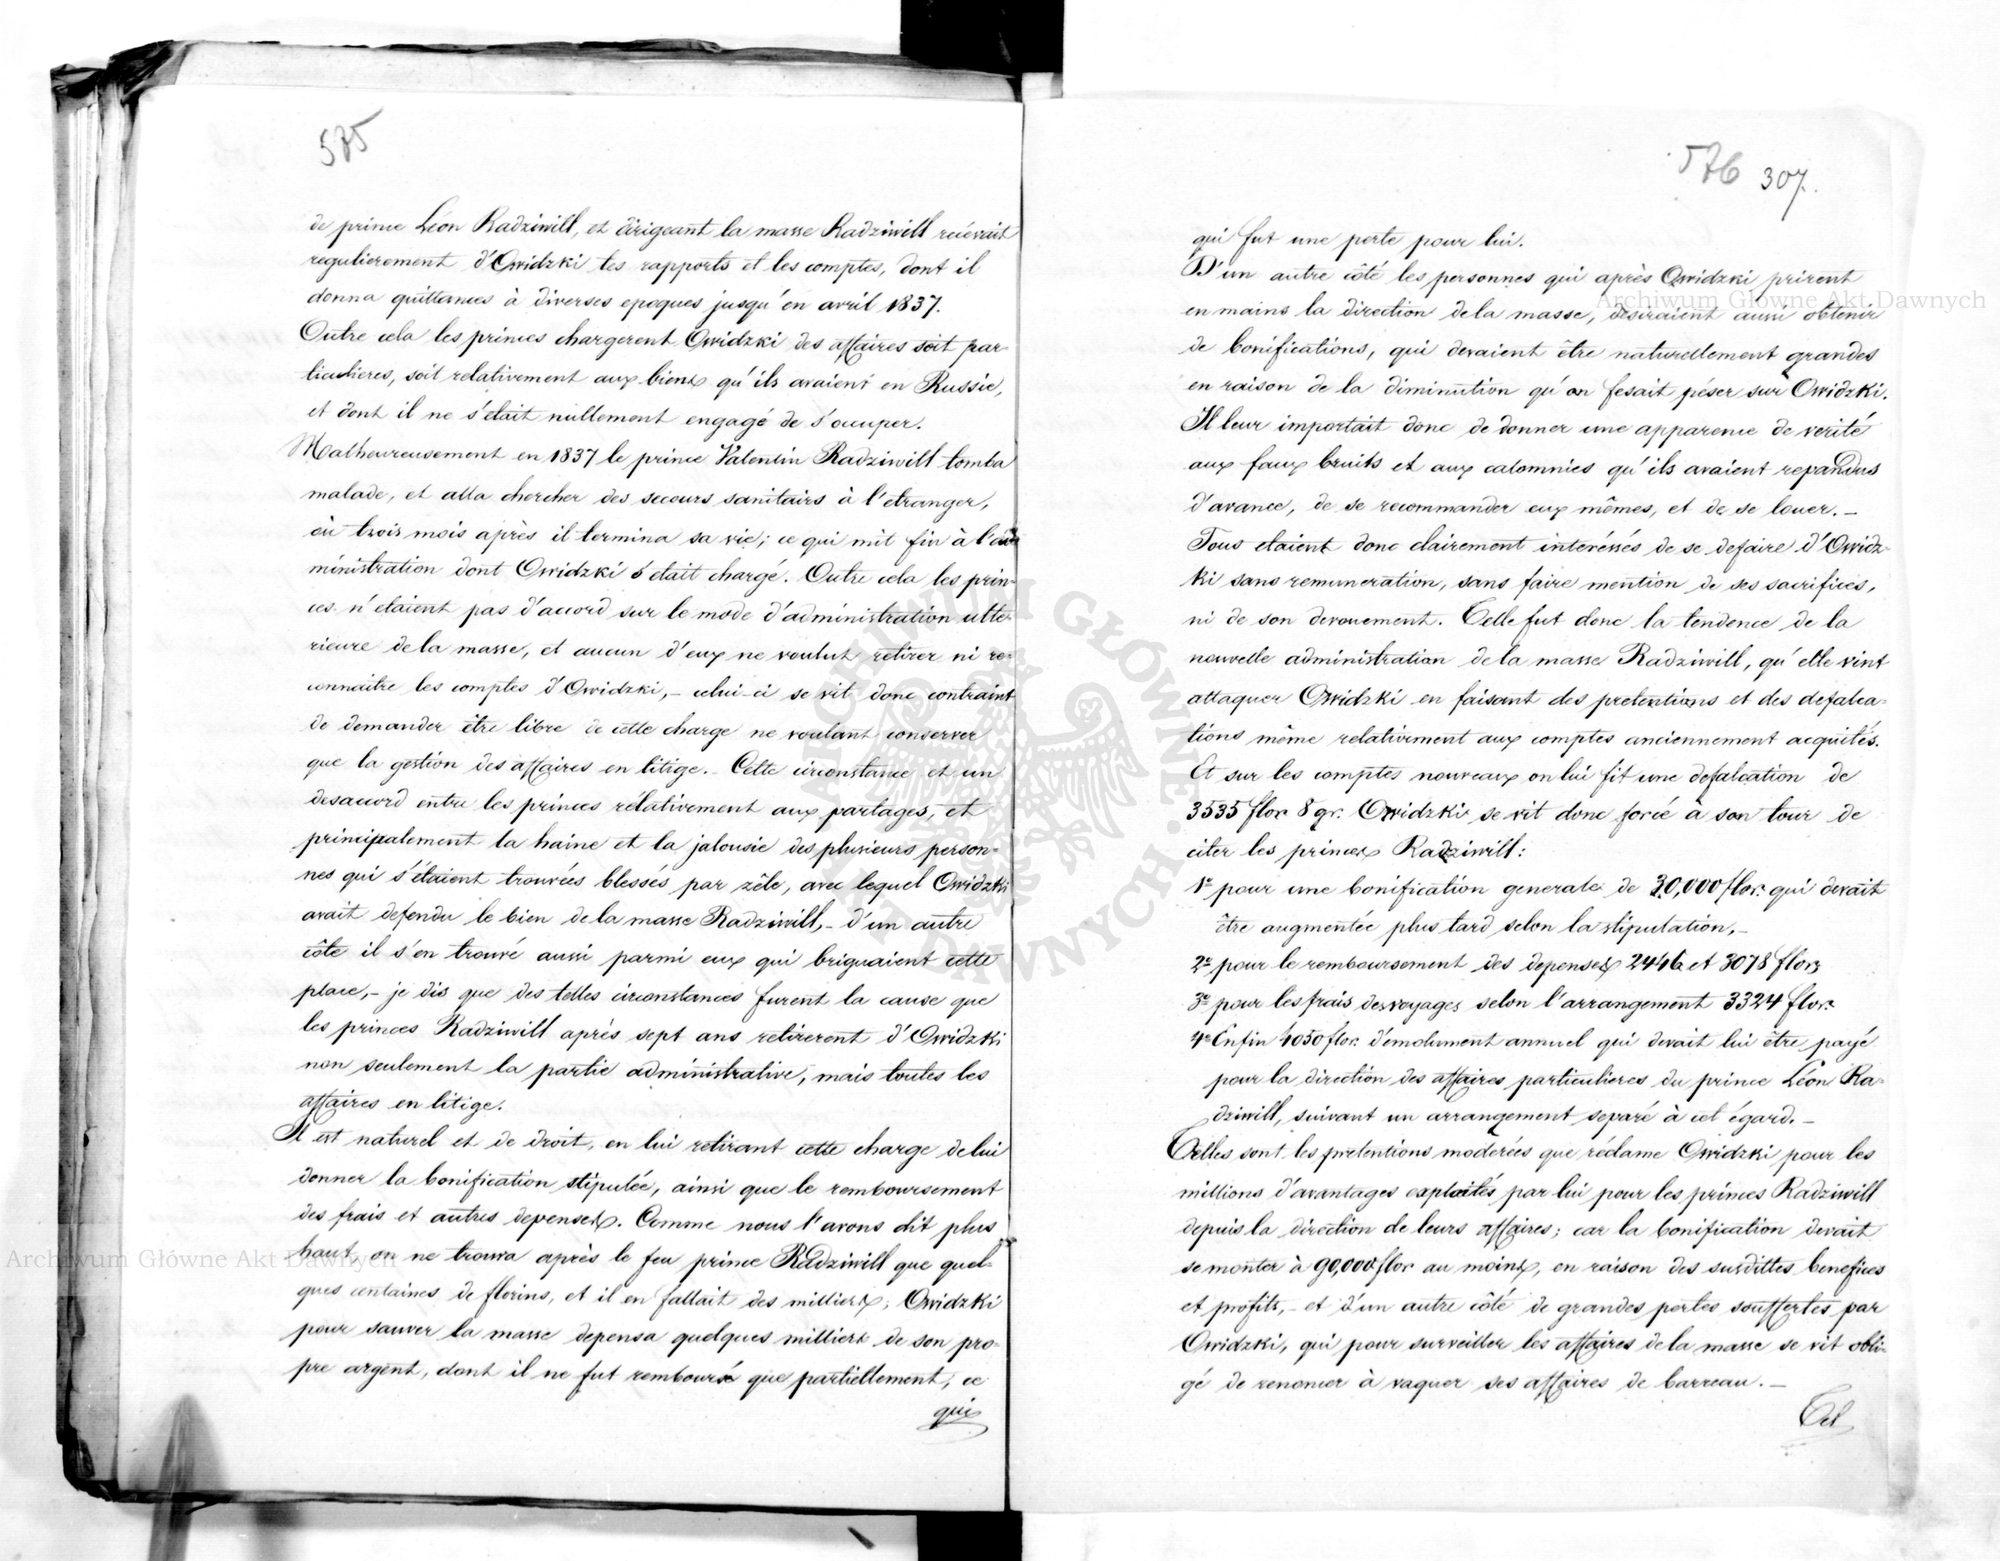 575
de prince Léon Radziwill, et dirigeant la masse Radziwill recevait
regulierement d'Owidzki les rapports et les comptes, dont il
donna quittances à diverses epoques jusqu'en avril 1837.
Outre cela les princes chargerent Owidzki des affaires soit par-
ticulieres, soit relativement aux biens qu'ils avaient en Russie,
et dont il ne s'etait nullement engagé de s'occuper.
Malheureusement en 1837 le prince Valentin Radziwill tomba
malade, et alla chercher des secours sanitairs à l'etranger,
où trois mois après il termina sa vie; ce qui mit fin à l'ad-
ministration dont Owidzki s'etait chargé. Outre cela les prin-
ces n'etaient pas d'accord sur le mode d'administration ulte-
rieure de la masse, et aucun d'eux ne voulut retirer ni re-
connaitre les comptes d'Owidzki,- celui-ci se vit donc contraint
de demander être libre de cette charge ne voulant conserver
que la gestion des affaires en litige.- Cette circonstance et un
desaccord entre les princes rélativement aux partages, et
principalement la haine et la jalousie des plusieurs person-
nes qui s'étaient trouvées blessés par zêle, avec lequel Owidzki
avait defendu le bien de la masse Radziwill,- d'un autre
côte il s'en trouvé aussi parmi eux qui briguaient cette
place,- je dis que des telles circonstances furent la cause que
les princes Radziwill après sept ans retirerent d'Owidzki
non seulement la partie administrative, mais toutes les
affaires en litige.
Il est naturel et de droit, en lui retirant cette charge de lui
donner la bonification stipulée, ainsi que le remboursement
des frais et autres depenses. Comme nous l'avons dit plus
haut, on ne trouva après le feu prince Radziwill que quel-
ques centaines de florins, et il en fallait des milliers; Owidzki
pour sauver la masse depensa quelques milliers de son pro-
pre argent, dont il ne fut remboursé que partiellement, ce
qui
576 307.
qui fut une perte pour lui.
D'un autre côté les personnes qui après Owidzki prirent
en mains la direction de la masse, desiraient aussi obtenir
de bonifications, qui devaient être naturellement grandes
en raison de la diminution qu'on fesait péser sur Owidzki.
Il leur importait donc de donner une apparence de verité
aux faux bruits et aux calomnies qu'ils avaient repandus
d'avance, de se recommander eux mêmes, et de se louer.-
Tous etaient donc clairement interéssés de se defaire d'Owidz-
ki sans remuneration, sans faire mention de ses sacrifices,
ni de son devouement. Telle fut donc la tendence de la
nouvelle administration de la masse Radziwill, qu'elle vint
attaquer Owidzki en faisant des pretentions et des defalca-
tions même relativement aux comptes anciennement acquités.
Et sur les comptes nouveaux on lui fit une defalcation de
3535 flor. 8 gr. Owidzki se vit donc forcé à son tour de
citer les princes Radziwill:
1º pour une bonification generale de 30,000 flor. qui devait
être augmentée plus tard selon la stipulation,-
2º pour le remboursement des depenses 2446 et 3078 flor.
3º pour les frais des voyages selon l'arrangement 3324 flor.
4º Enfin 4050 flor. d'emolument annuel qui devait lui être payé
pour la direction des affaires particulieres du prince Léon Ra-
dziwill, suivant un arrangement separé à cet égard.-
Telles sont les pretentions moderées que réclame Owidzki pour les
millions d'avantages exploités par lui pour les princes Radziwill
depuis la direction de leurs affaires; car la bonification devait
se monter à 90,000 flor au moins, en raison des susdittes benefices
et profits,- et d'un autre côté de grandes pertes souffertes par
Owidzki, qui pour surveiller les affaires de la masse se vit obli-
gé de renoncer à vaquer ses affaires de barreau.-
Tel
Archiwum Główne Akt Dawnych
Archiwum Główne Akt Dawnych
ARCHIWUM GŁÓWNE AKT DAWNYCH